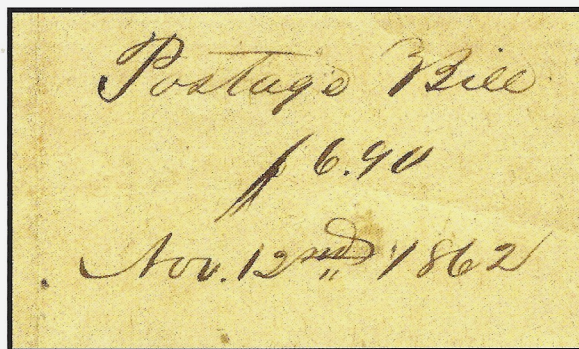 Postage Bill
$6.90
Nov. 12nd 1862